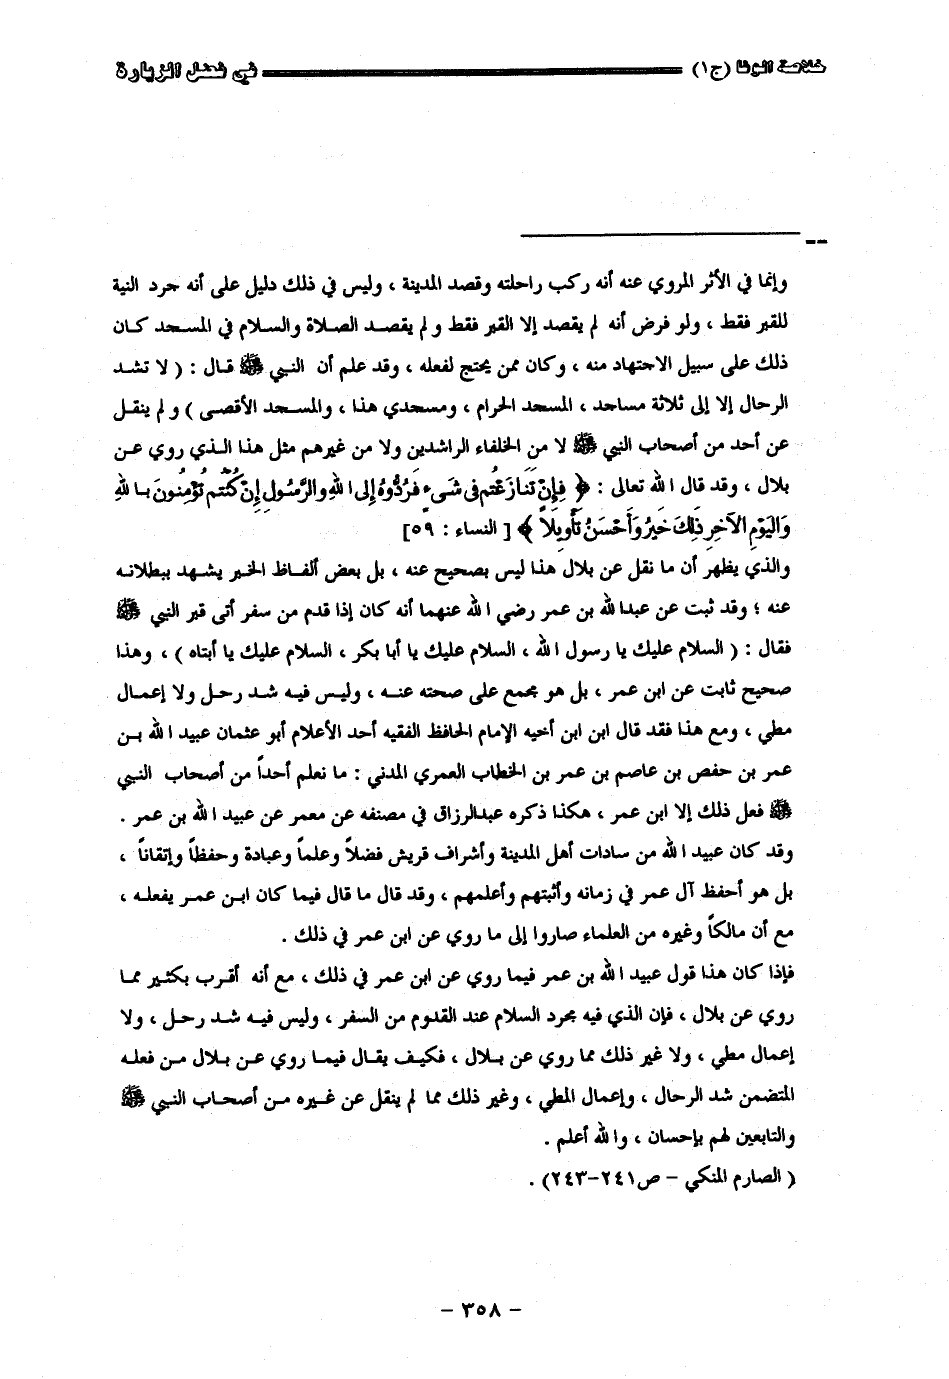 خلاصة الوفا (ج١) في فضل الزيارة
وإنما في الأثر المروي عنه أنه ركب راحلته وقصد المدينة ، وليس في ذلك دليل على أنه جرد النية
للقبر فقط ، ولو فرض أنه لم يقصد إلا القبر فقط و لم يقصد الصلاة والسلام في المسجد كان
ذلك على سبيل الاجتهاد منه ، وكان ممن يحتج لفعله ، وقد علم أن النبي ﷺ قال : ( لا تشد
الرحال إلا إلى ثلاثة مساجد ، المسجد الحرام ، ومسجدي هذا ، والمسجد الأقصى ) و لم ينقل
عن أحد من أصحاب النبي ﷺ لا من الخلفاء الراشدين ولا من غيرهم مثل هذا الذي روي عن
بلال ، وقد قال الله تعالى : ﴿ فَإِنْ تَنَازَعْتُمْ فِى شَىءٍ فَرُدُّوهُ إِلَى اللهِ وَالرَّسُولِ إِنْ كُنْتُمْ تُؤْمِنُونَ بِاللهِ
وَالْيَوْمِ الآخِرِ ذَلِكَ خَيْرٌ وَأَحْسَنُ تَأْوِيلاً ﴾ [ النساء : ٥٩]
والذي يظهر أن ما نقل عن بلال هذا ليس بصحيح عنه ، بل بعض ألفاظ الخبر يشهد ببطلانه
عنه ؛ وقد ثبت عن عبدالله بن عمر رضي الله عنهما أنه كان إذا قدم من سفر أتى قبر النبي ﷺ
فقال : ( السلام عليك يا رسول الله ، السلام عليك يا أبا بكر ، السلام عليك يا أبتاه ) ، وهذا
صحيح ثابت عن ابن عمر ، بل هو مجمع على صحته عنه ، وليس فيه شد رحل ولا إعمال
مطي ، ومع هذا فقد قال ابن ابن أخيه الإمام الحافظ الفقيه أحد الأعلام أبو عثمان عبيد الله بن
عمر بن حفص بن عاصم بن عمر بن الخطاب العمري المدني : ما نعلم أحداً من أصحاب النبي
ﷺ فعل ذلك إلا ابن عمر ، هكذا ذكره عبدالرزاق في مصنفه عن معمر عن عبيد الله بن عمر .
وقد كان عبيد الله من سادات أهل المدينة وأشراف قريش فضلاً وعلماً وعبادة وحفظاً وإتقاناً ،
بل هو أحفظ آل عمر في زمانه وأثبتهم وأعلمهم ، وقد قال ما قال فيما كان ابن عمر يفعله ،
مع أن مالكاً وغيره من العلماء صاروا إلى ما روي عن ابن عمر في ذلك .
فإذا كان هذا قول عبيد الله بن عمر فيما روي عن ابن عمر في ذلك ، مع أنه أقرب بكثير مما
روي عن بلال ، فإن الذي فيه مجرد السلام عند القدوم من السفر ، وليس فيه شد رحل ، ولا
إعمال مطي ، ولا غير ذلك مما روي عن بلال ، فكيف يقال فيما روي عن بلال من فعله
المتضمن شد الرحال ، وإعمال المطي ، وغير ذلك مما لم ينقل عن غيره من أصحاب النبي ﷺ
والتابعين لهم بإحسان ، والله أعلم .
( الصارم المنكي - ص٢٤١-٢٤٣) .
- ٣٥٨ -